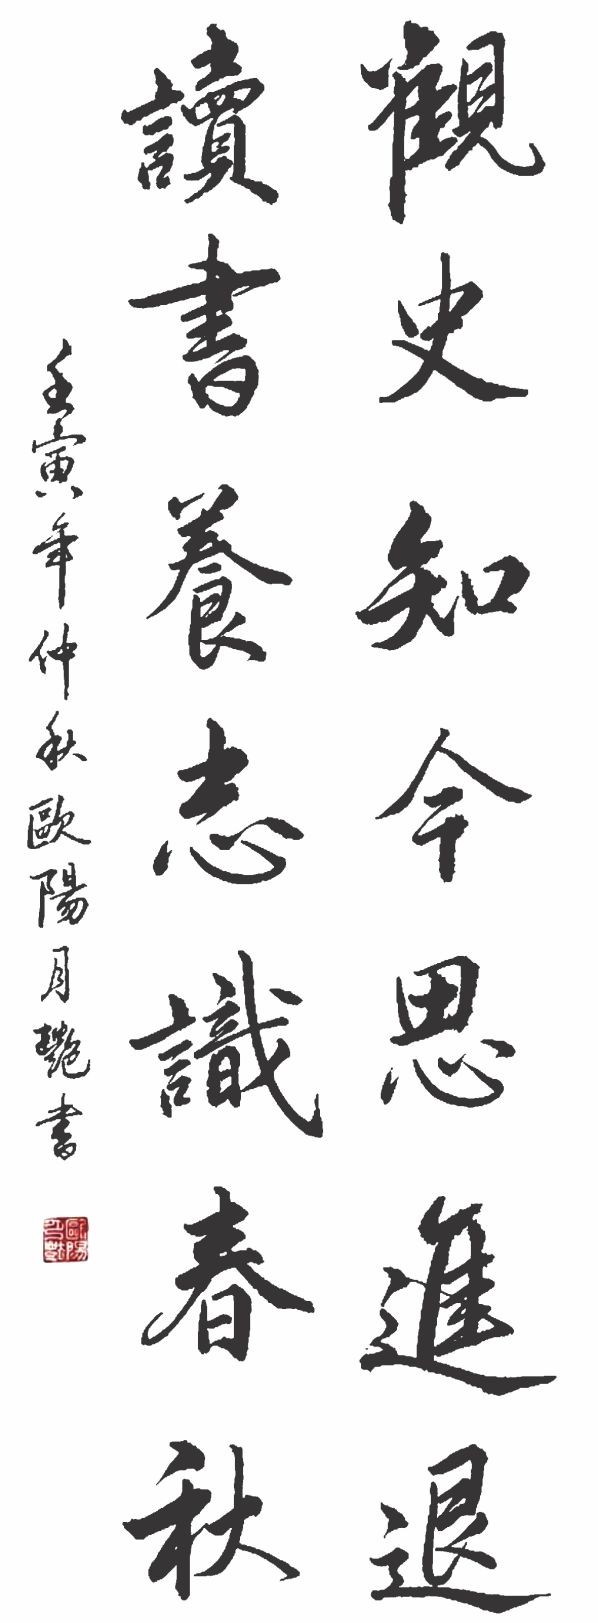 觀史知今思進退
讀書養志識春秋
壬寅年仲秋歐陽月艷書
歐陽月艷